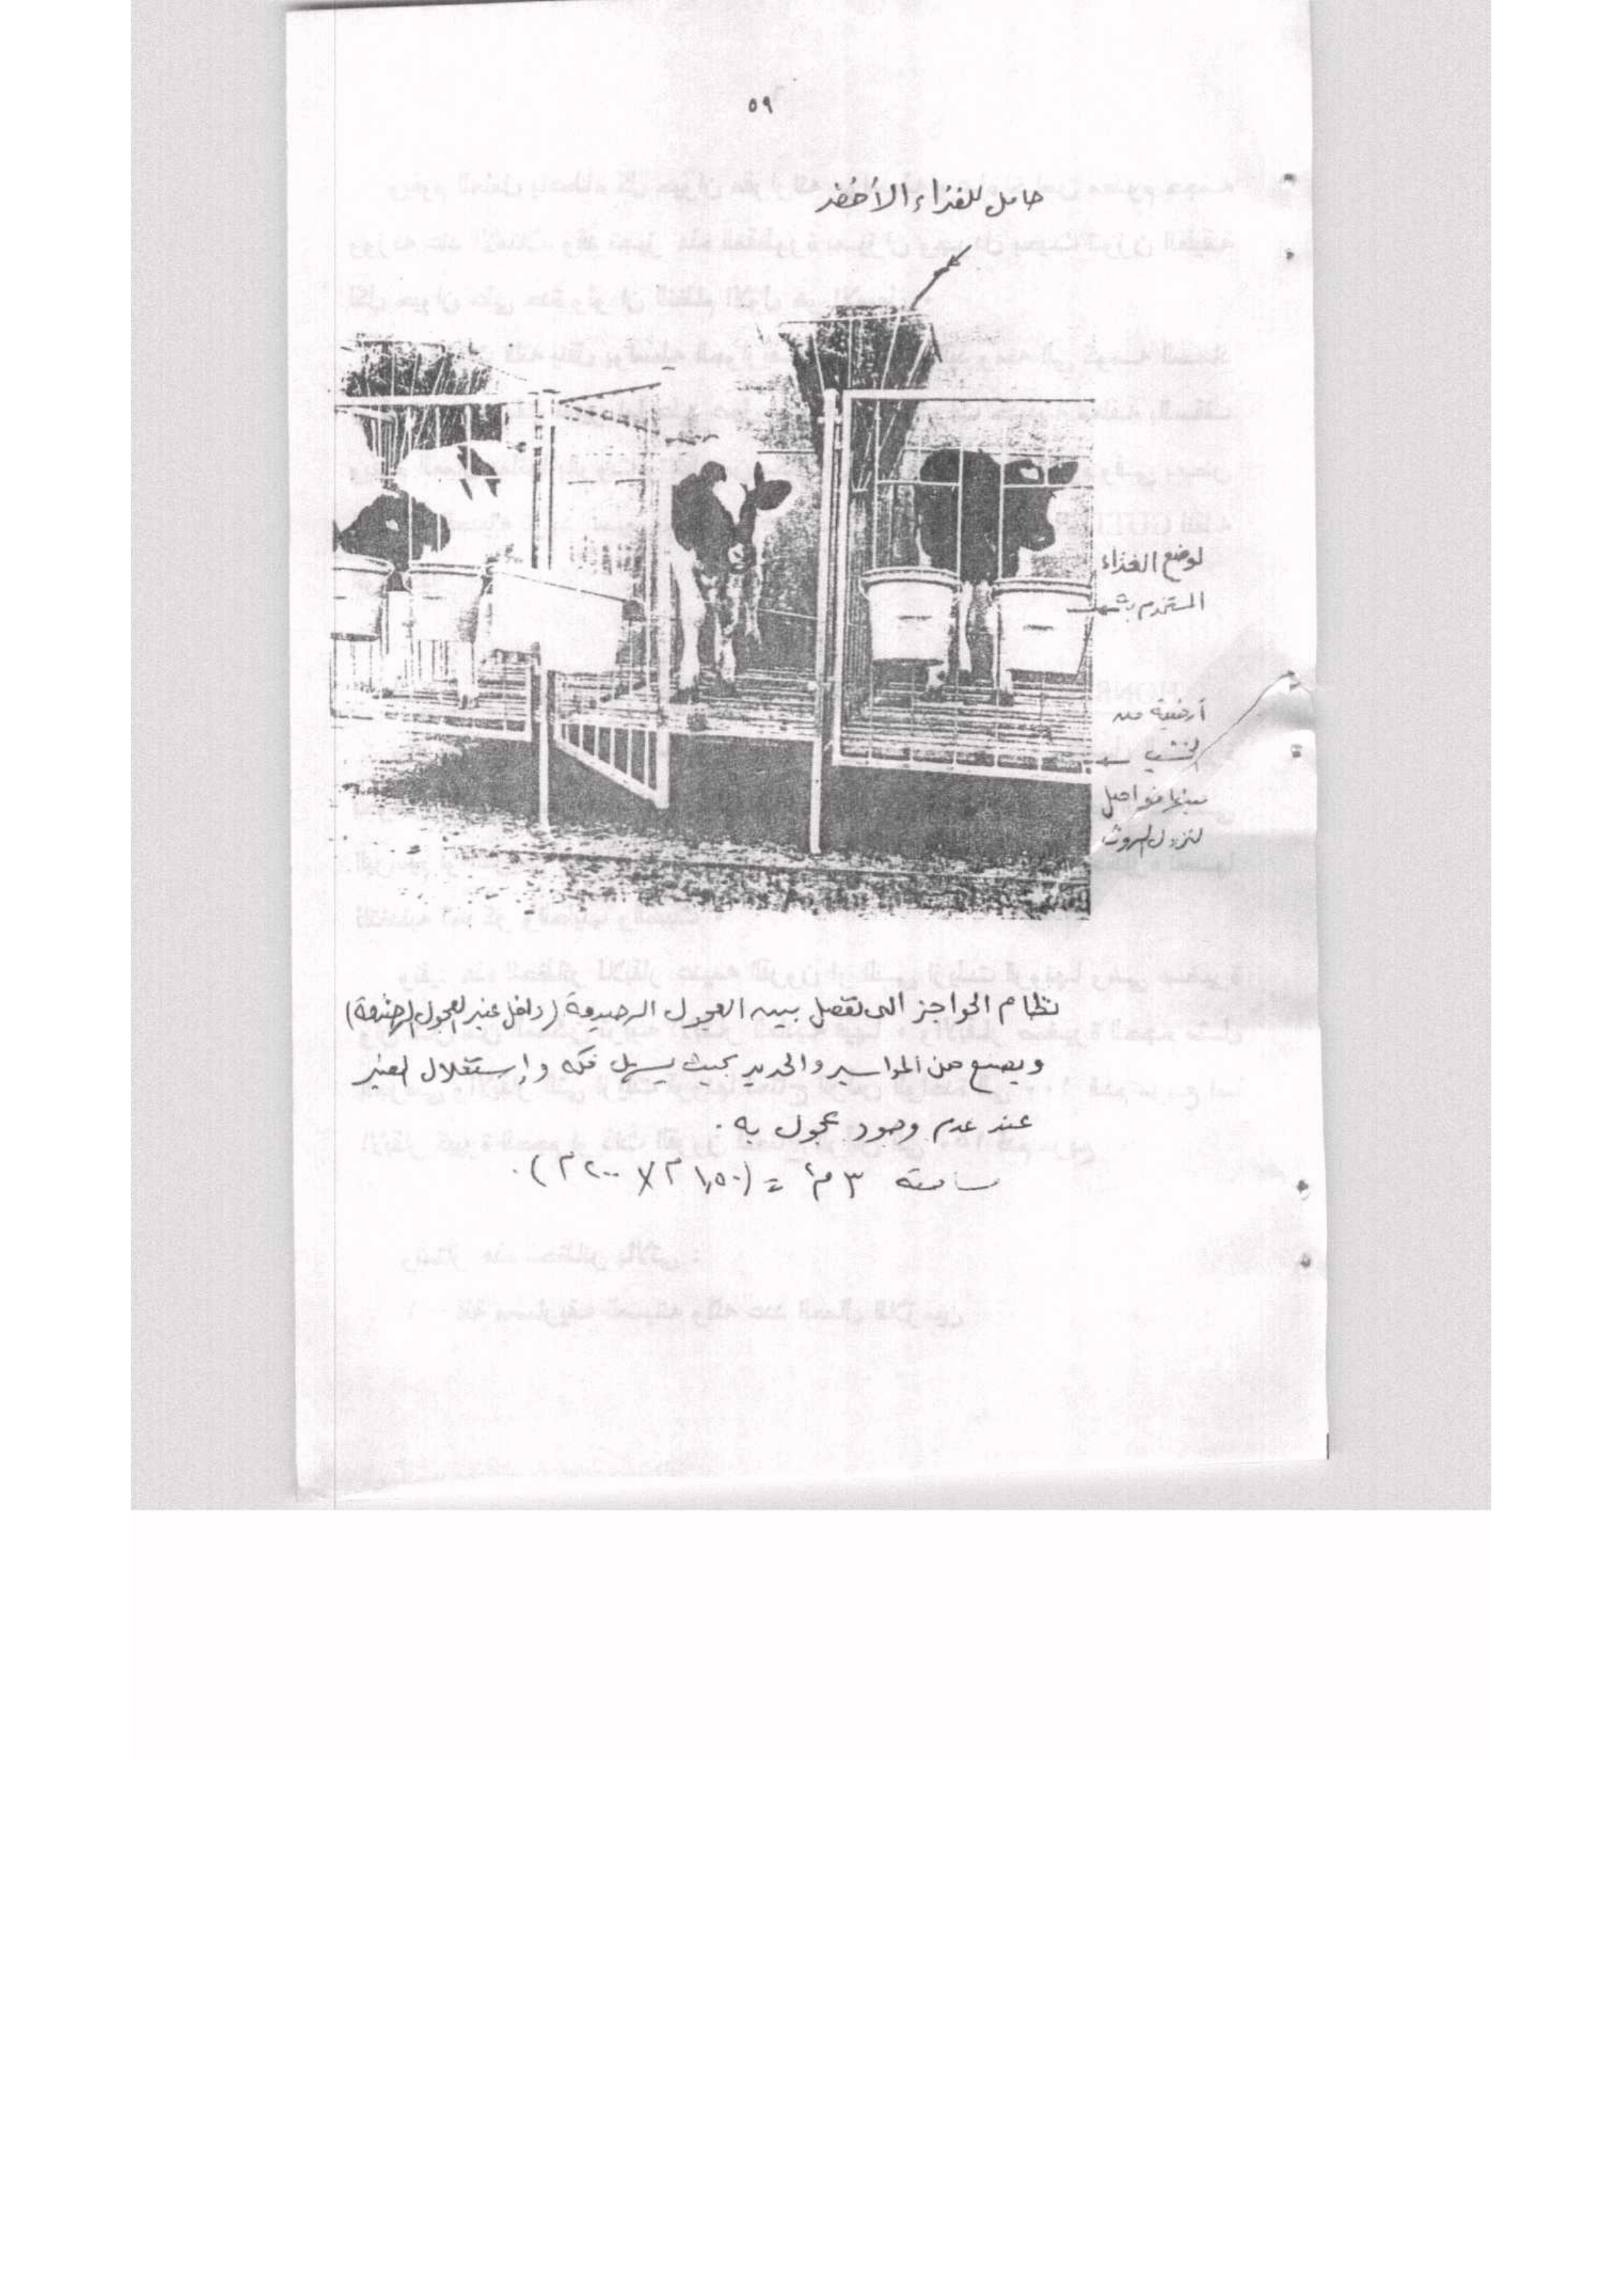 ٥٩
حامل للغذاء الأخضر
لوضع الغذاء
المستخدم به
أرضية من
الخشب
بينها فواصل
لنزول الروث
نظام الحواجز التى تفصل بين العجول الرضيعة (داخل عنبر العجول الرضيعة)
ويصنع من المواسير والحديد بحيث يسهل فكه وإستغلال العنبر
عند عدم وجود عجول به.
مساحته ٣ م٢ = (١,٥٠ م X ٢٠٠ م).